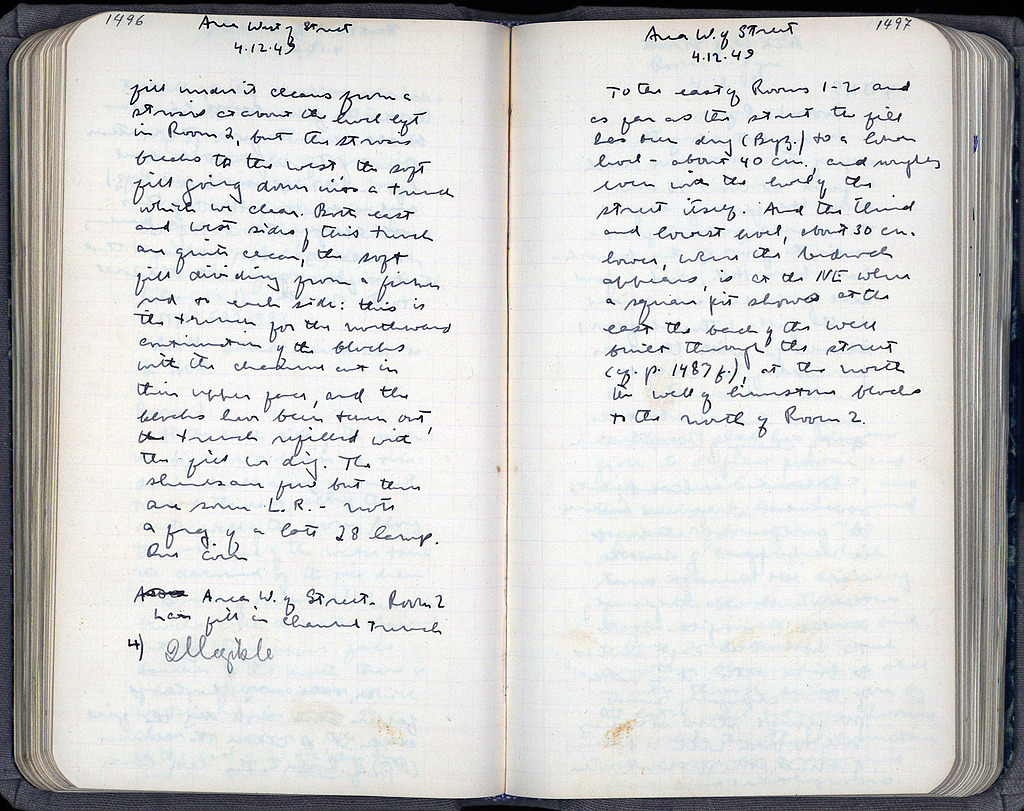 1496
Area West of Street
4.12.49
fill under it cleans from a
strosis at about the level left
in Room 2, but the strosis
breaks to the west, the soft
fill going down into a trench
which we clear. Both east
and west sides of this trench
are quite clear, the soft
fill dividing from a firmer
red to each side: this is
the trench for the northward
continuation of the blocks
with the channel cut in
their upper faces, and the
blocks have been torn out,
the trench refilled with
the fill we dig. The
sherds are few but there
are some L.R. - note
a frag. of a late 28 lamp.
One coin
Area W. of Street - Room 2
fill in channel trench
4) Illegible
1497
Area W. of Street
4.12.49
To the east of Rooms 1-2 and
as far as the street the fill
has been dug (Byz.) to a lower
level - about 40 cm. and roughly
even with the level of the
street itself. And the third
and lowest level, about 30 cm.
lower, where the bedrock
appears, is at the NE where
a square pit shows at the
east the back of the well
built through the street
(cf. p. 1487 f.), at the north
the wall of limestone blocks
to the north of Room 2.